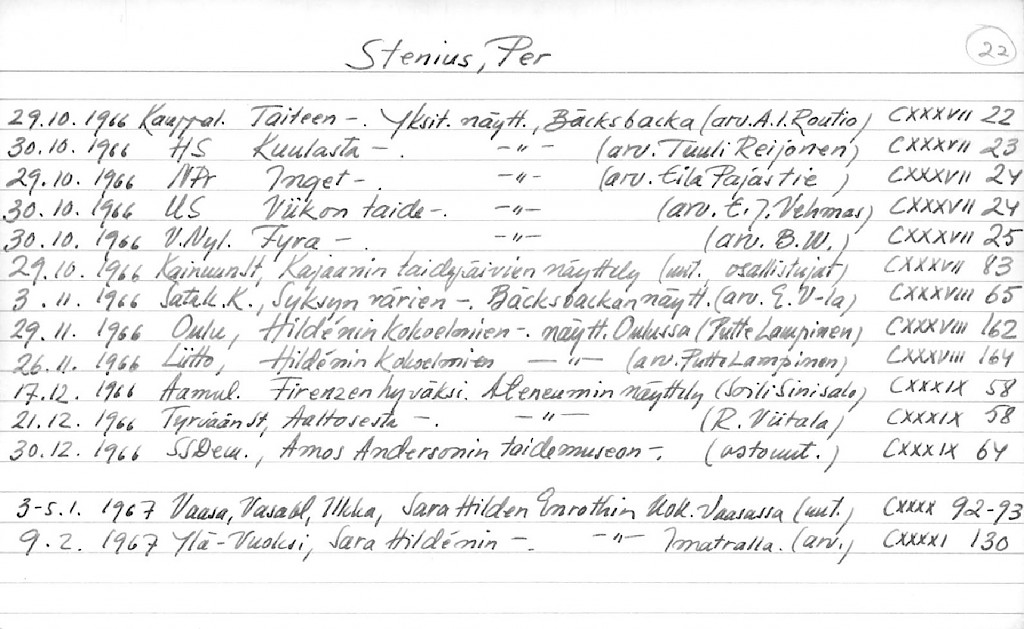 Stenius, Per
22
29.10. 1966 Kauppal. Taiteen -. Yksit. näytt., Bäcksbacka (arv. A.I. Routio) CXXXVII 22
30.10. 1966 HS Kuulasta -. -"- (arv. Tuuli Reijonen) CXXXVII 23
29.10. 1966 NPr Inget -. -"- (arv. Eila Pajastie ) CXXXVII 24
30.10. 1966 US Viikon taide -. -"- (arv. E.J. Vehmas) CXXXVII 24
30.10. 1966 V.Nyl. Fyra -. -"- (arv. B.W.) CXXXVII 25
29.10. 1966 Kainuun St, Kajaanin taidepäivien näyttely (uut. osallistujat) CXXXVII 83
3.11. 1966 Satak. K., Syksyn värien -. Bäcksbackan näytt. (arv. E. V-la) CXXXVIII 65
29.11. 1966 Oulu, Hildénin kokoelmien -. näytt. Oulussa (Putte Lampinen) CXXXVIII 162
26.11. 1966 Liitto, Hildénin kokoelmien -"- (arv. Putte Lampinen) CXXXVIII 164
17.12. 1966 Aamul. Firenzen hyväksi. Ateneumin näyttely (Soili Sinisalo) CXXXIX 58
21.12. 1966 Tyrvään St, Aaltosesta -. -"- (R. Viitala) CXXXIX 58
30.12. 1966 SSDem., Amos Andersonin taidemuseon -. (ostouut.) CXXXIX 64
3-5.1. 1967 Vaasa, Vasabl, Ilkka, Sara Hilden Enrothin kok. Vaasassa (uut.) CXXXX 92-93
9.2. 1967 Ylä-Vuoksi, Sara Hildénin -. -"- Imatralla. (arv.) CXXXXI 130